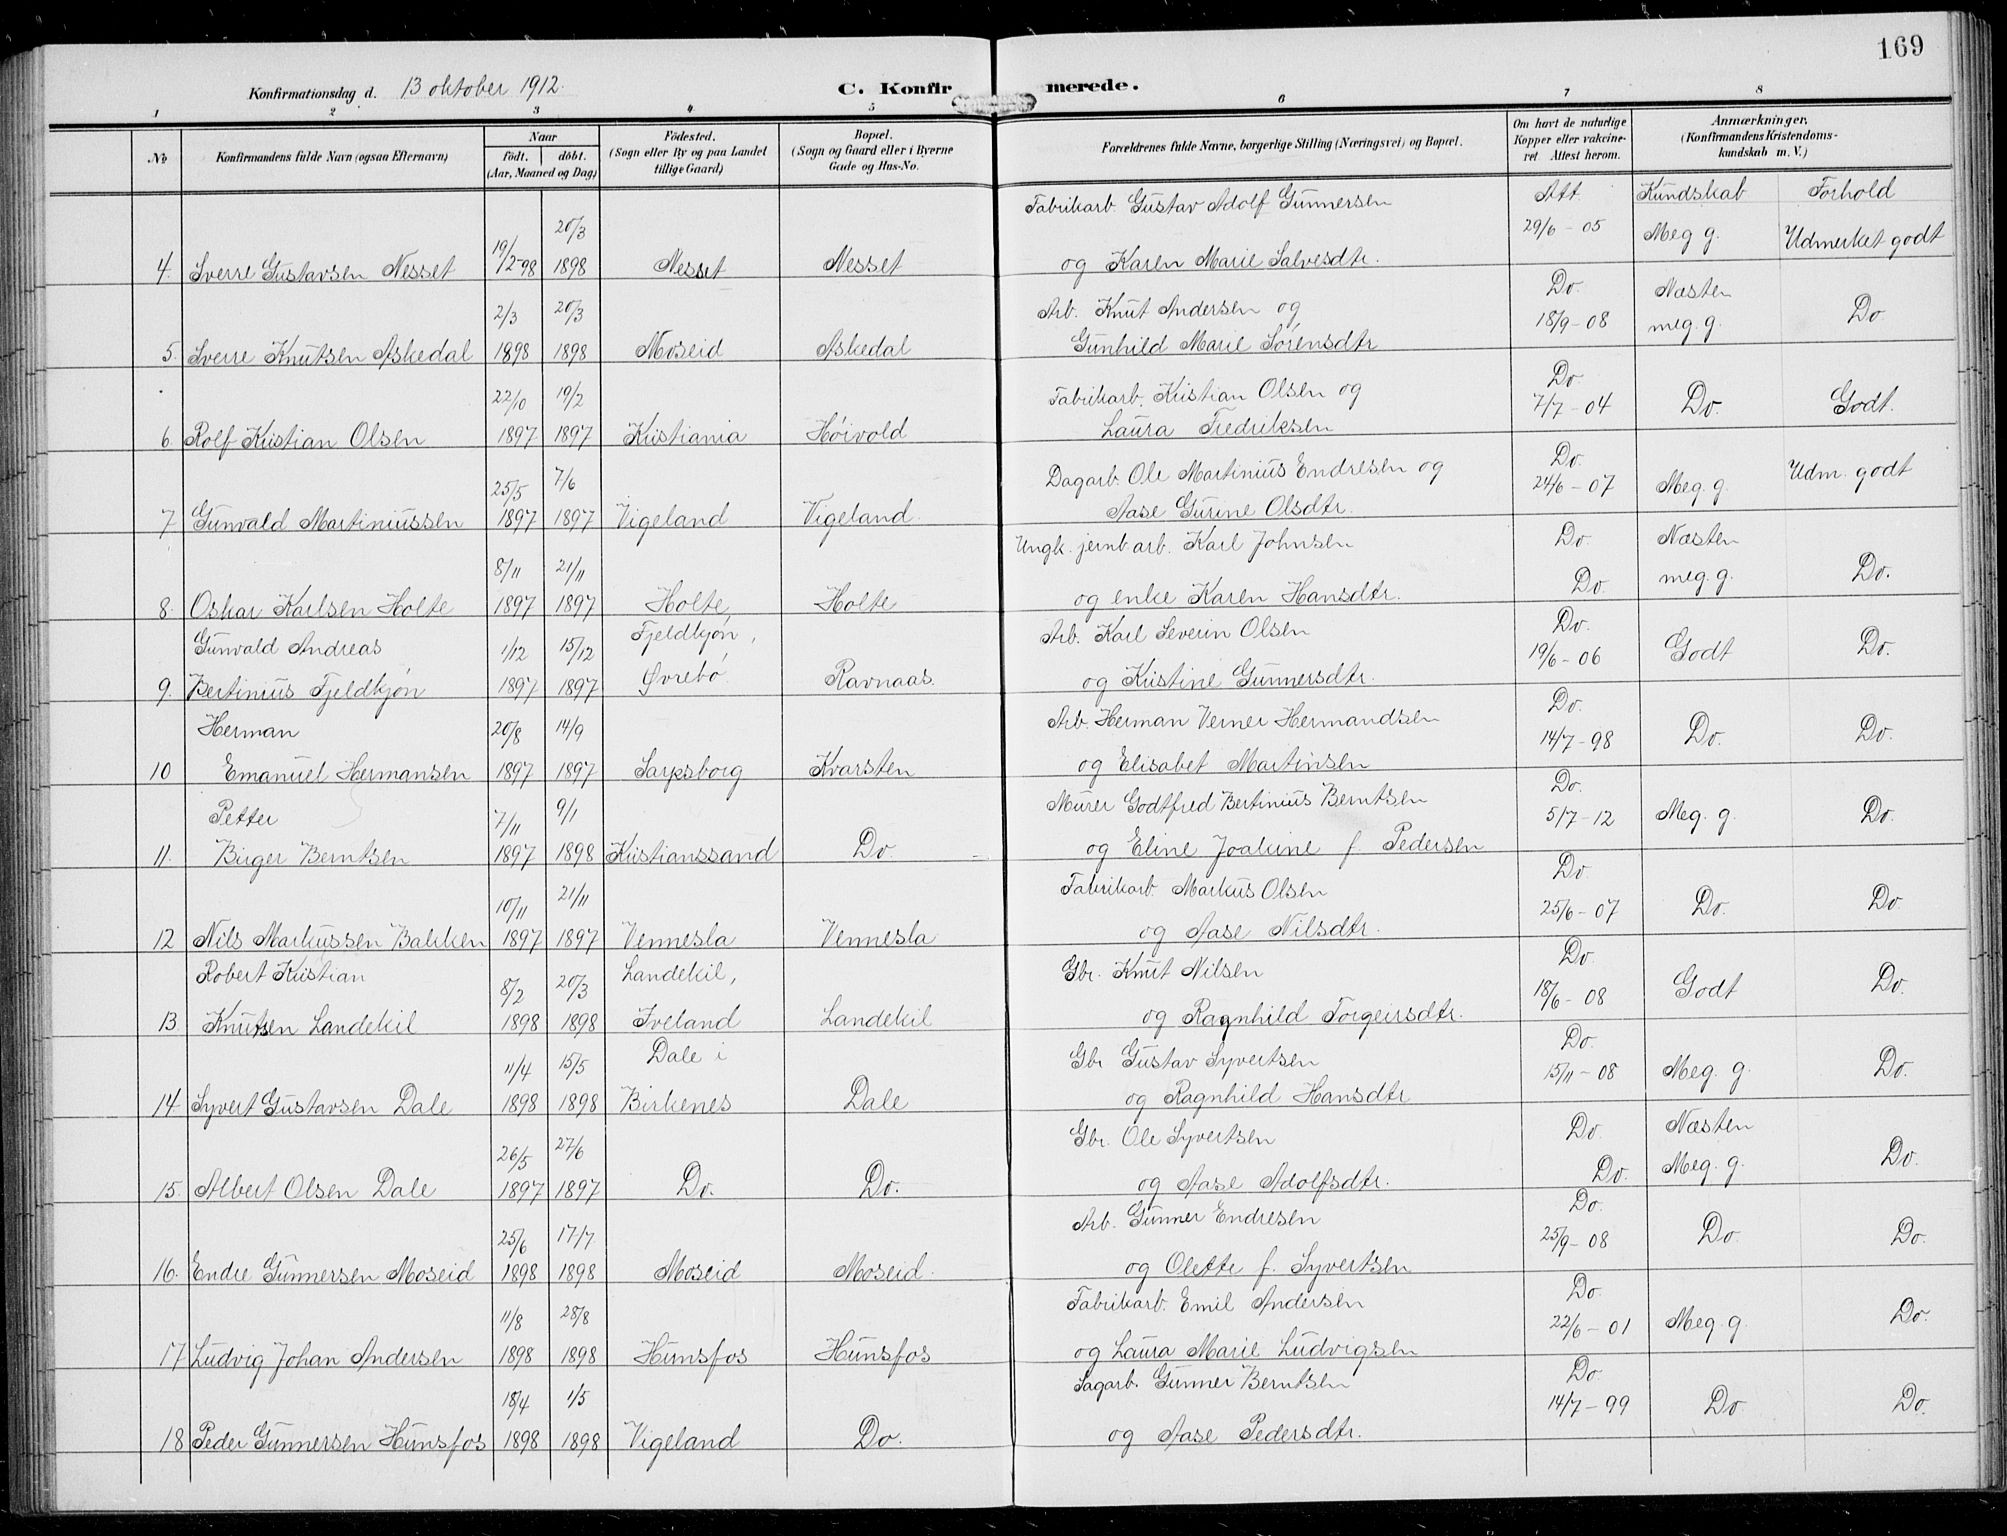 169
Konfirmationsdag d. 13 oktober 1912. C. Konfirmerede.
1 2 3 4 5 6 7 8
No Konfirmandens fulde Navn (ogsaa Efternavn) Naar født. døbt. (Aar, Maaned og Dag) Födested. (Sogn eller By og paa Landet tillige Gaard) Bopæl. (Sogn og Gaard eller i Byerne Gade og Hus-No. Forældrenes fulde Navne, borgerlige Stilling (Næringsvei) og Bopæl. Om havt de naturlige Kopper eller vakcineret Attest herom. Anmærkninger. (Konfirmandens Kristendomskundskab m. V.)
Att. Kundskab Forhold
4. Sverre Gustavsen Nesset 19/2-98 20/3 1898 Nesset Nesset Fabrikarb. Gustav Adolf Gunnersen og Karen Marie Salvesdtr. 29/6-05 Meg g. Udmerket godt
5. Sverre Knutsen Askedal 2/3 1898 20/3 1898 Moseid Askedal Arb. Knut Andersen og Gunhild Marie Sörensdtr Do. 18/9-08 Næsten meg. g. Do
6 Rolf Kristian Olsen 22/10 1897 19/2 1897 Kristiania Höivold Fabrikarb. Kristian Olsen og Laura Fredriksen Do 7/7-04 Do. Godt.
7 Gunvald Martiniussen 25/5 1897 7/6 1897 Vigeland Vigeland. Dagarb. Ole Martinius Endresen og Aase Gurine Olsdtr. Do. 24/6-07 Meg. g. Udm. godt
8. Oskar Karlsen Holte 8/11 1897 21/11 1897 Holte, Holte Ungk. jernb arb. Karl Johnsen og enke Karen Hansdtr. Do. Do. Næsten meg. g. Do.
9. Gunvald Andreas Bertinius Fjeldkjøn 1/12 1897 15/12 1897 Fjeldkjøn, Øvrebø Ravnaas. Arb. Karl Severin Olsen og Kristine Gunnersdtr. Do. 19/6-06 Godt Do.
10 Herman Emanuel Hermansen 20/8 1897 14/9 1897 Sarpsborg Kvarsten Arb. Herman Verner Hermandsen og Elisabet Martinsen Do. 14/7-98 Do. Do.
11. Petter Birger Berntsen 7/11 1897 9/1 1898 Kristianssand Do. Murer Godtfred Bertinius Berntsen og Eline Joakine f. Pedersen Do. 5/7-12 Meg. g. Do.
12 Nils Markussen Bakken 10/11 1897 21/11 1897 Vennesla Vennesla Fabrikarb. Markus Olsen og Aase Nilsdtr. Do. 25/6-07 Do. Do.
13 Robert Kristian Knutsen Landekil 8/2 1898 20/3 1898 Landekil, Iveland Landekil Gbr. Knut Nilsen og Ragnhild Torgeirsdtr. Do. 18/6-08 Godt Do.
14 Syvert Gustavsen Dale 11/4 1898 15/5 1898 Dale i Birkenes Dale Gbr Gustav Syvertsen og Ragnhild Hansdtr Do. 15/11-08 Meg. g. Do.
15. Albert Olsen Dale 26/5 1897 27/6 1897 Do. Do. Gbr. Ole Syvertsen og Aase Adolfsdtr. Do. Do. Næsten Meg. g. Do.
16. Endre Gunnersen Moseid 25/6 1898 17/7 1898 Moseid Moseid. Arb. Gunner Endresen og Olette f. Syvertsen Do. 25/9-08 Do. Do.
17 Ludvig Johan Andersen 11/8 1898 28/8 1898 Hunsfos Hunsfos Fabrikarb. Emil Andersen og Laura Marie Ludvigsen Do. 22/6-01 Meg. g. Do.
18 Peder Gunnersen Hunsfos 18/4 1898 1/5 1898 Vigeland Do. Sagarb. Gunner Berntsen og Aase Pedersdtr. Do. 14/7-99 Do. Do.